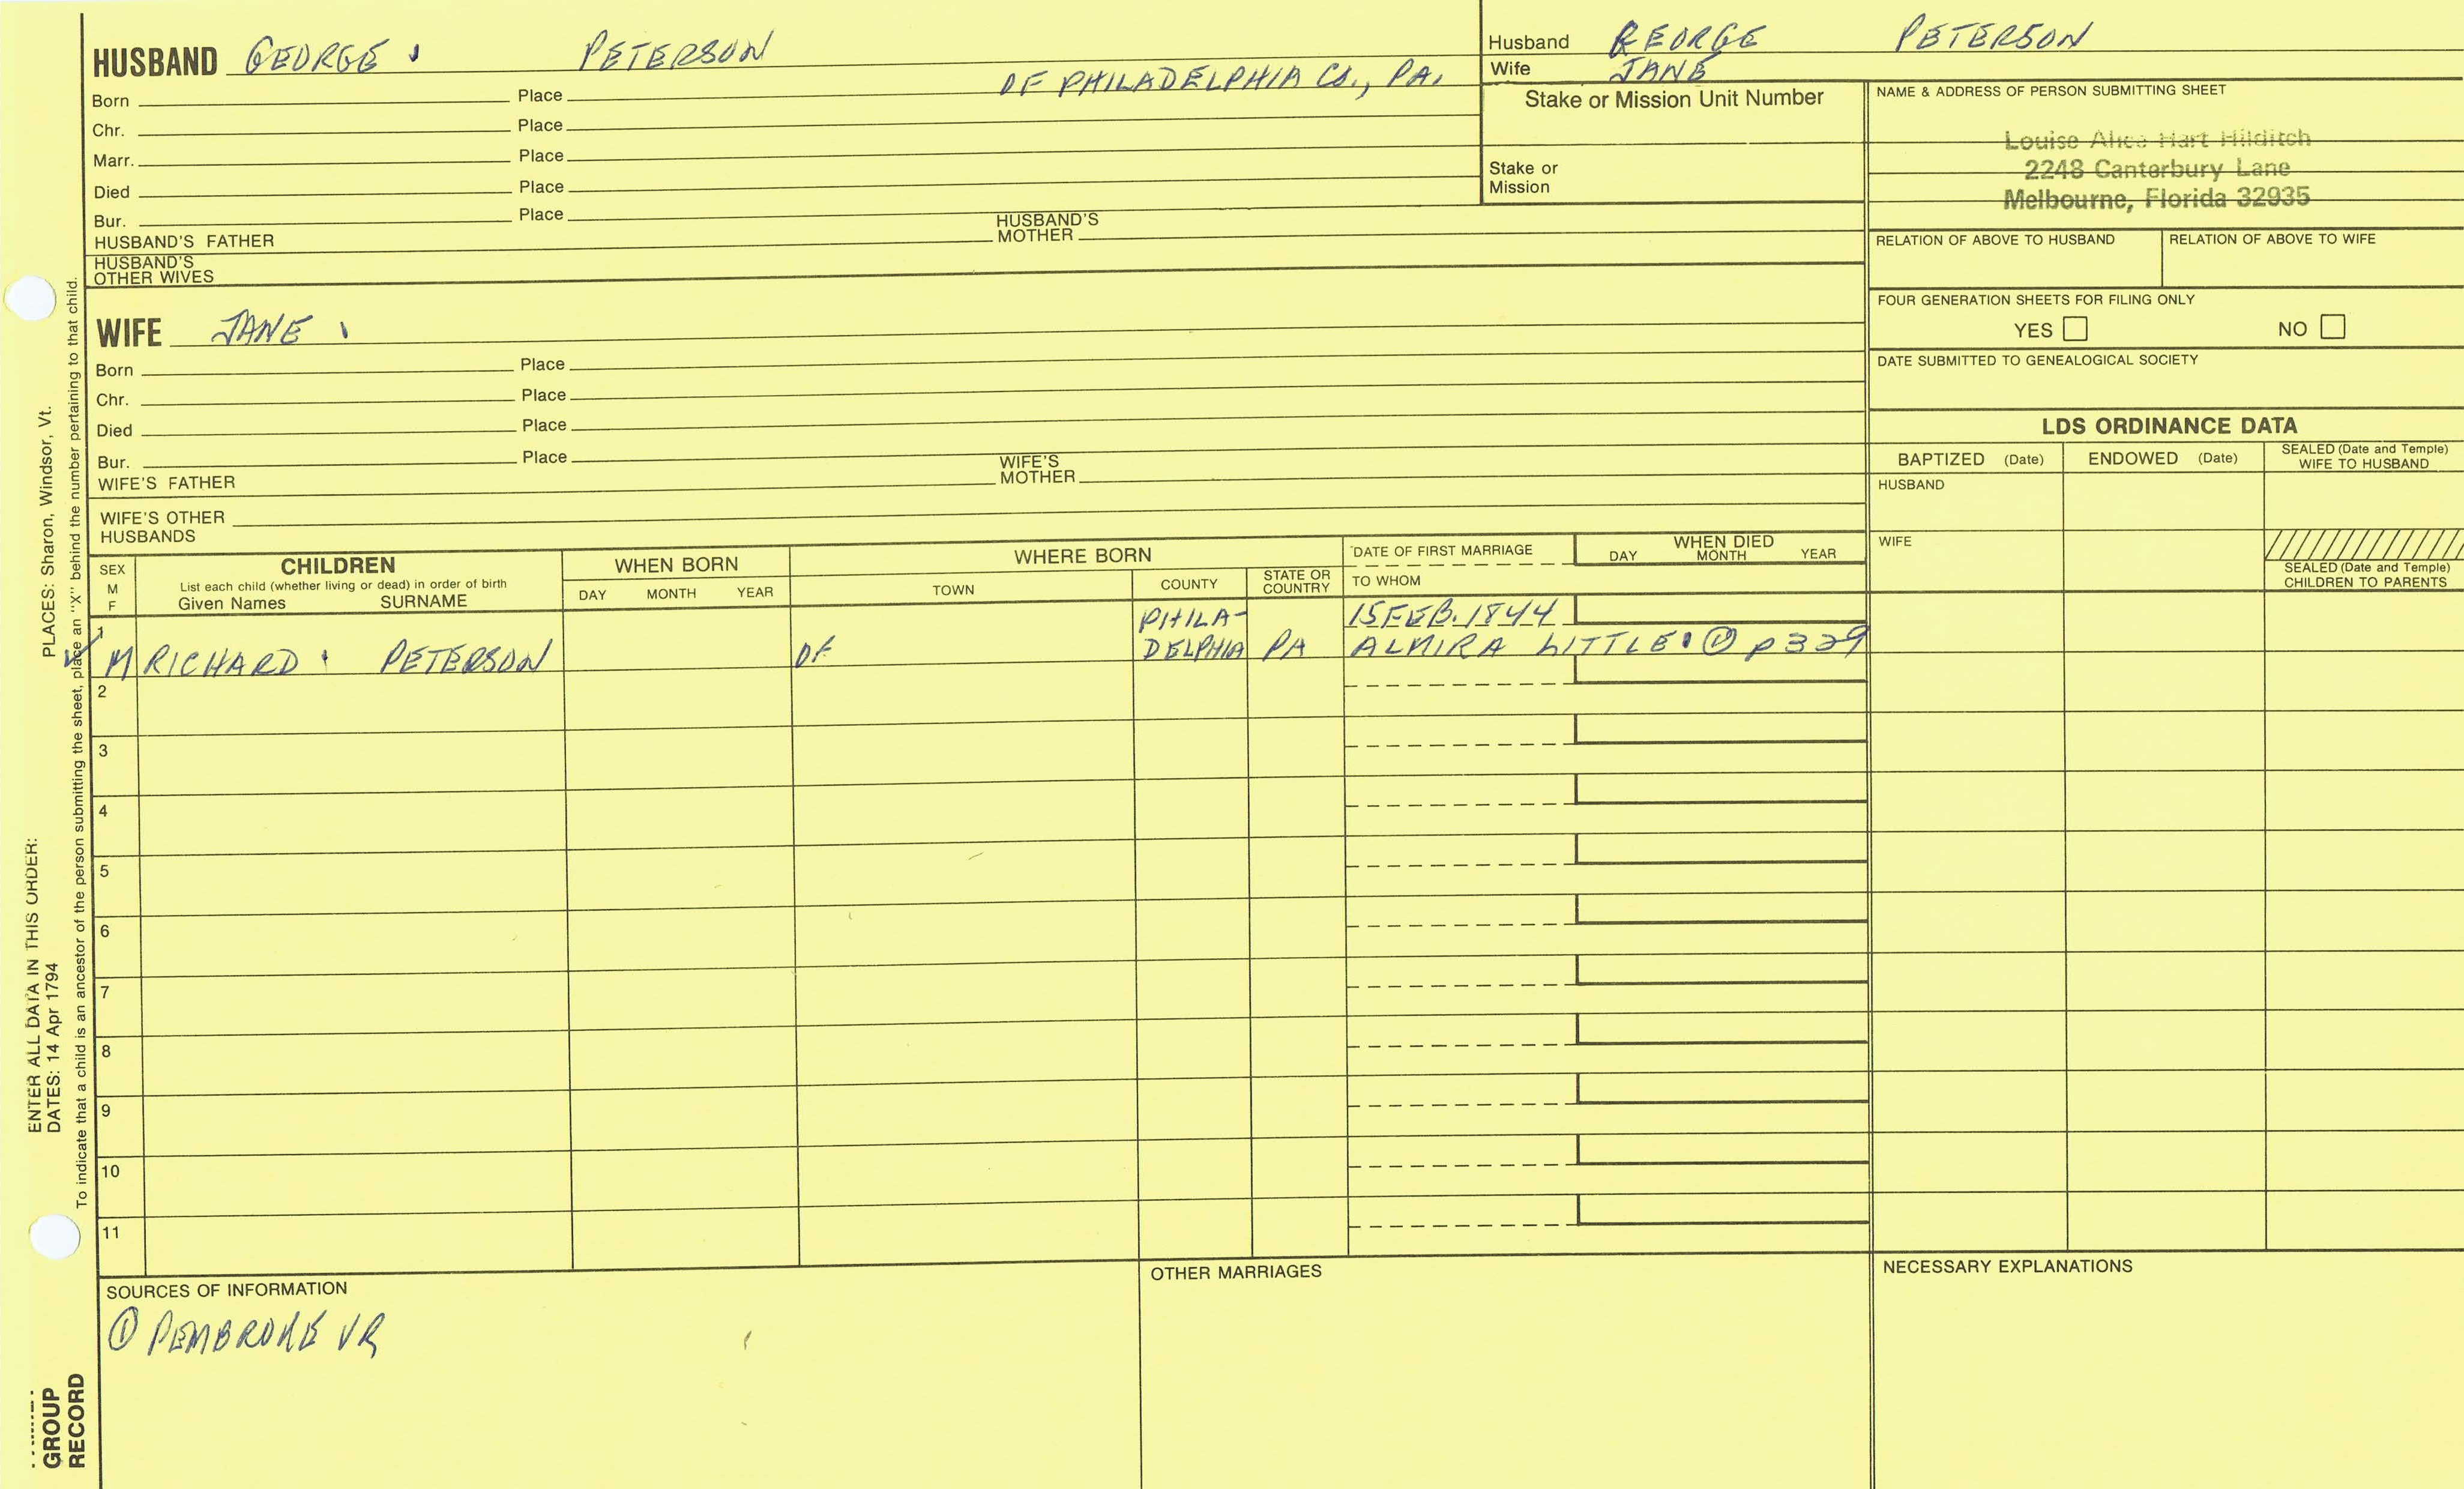 HUSBAND GEORGE PETERSON
Husband GEORGE PETERSON
Wife JANE
Born Place OF PHILADELPHIA CO., PA.
Chr. Place
Marr. Place
Died Place
Bur. Place
HUSBAND'S FATHER HUSBAND'S MOTHER
HUSBAND'S OTHER WIVES
Stake or Mission Unit Number
Stake or Mission
NAME & ADDRESS OF PERSON SUBMITTING SHEET
Louise Alice Hart Hilditch
2248 Canterbury Lane
Melbourne, Florida 32935
RELATION OF ABOVE TO HUSBAND RELATION OF ABOVE TO WIFE
FOUR GENERATION SHEETS FOR FILING ONLY
YES NO
DATE SUBMITTED TO GENEALOGICAL SOCIETY
WIFE JANE
Born Place
Chr. Place
Died Place
Bur. Place
WIFE'S FATHER WIFE'S MOTHER
WIFE'S OTHER HUSBANDS
LDS ORDINANCE DATA
BAPTIZED (Date) ENDOWED (Date) SEALED (Date and Temple) WIFE TO HUSBAND
HUSBAND
WIFE
SEALED (Date and Temple) CHILDREN TO PARENTS
SEX M F
CHILDREN
List each child (whether living or dead) in order of birth
Given Names SURNAME
WHEN BORN
DAY MONTH YEAR
WHERE BORN
TOWN COUNTY STATE OR COUNTRY
DATE OF FIRST MARRIAGE
TO WHOM
WHEN DIED
DAY MONTH YEAR
1 PHILA- 15 FEB. 1844
M RICHARD PETERSON OF DELPHIA PA ALMIRA LITTLE ① p 339
2
3
4
5
6
7
8
9
10
11
SOURCES OF INFORMATION
① PEMBROKE VR
OTHER MARRIAGES
NECESSARY EXPLANATIONS
ENTER ALL DATA IN THIS ORDER:
DATES: 14 Apr 1794 PLACES: Sharon, Windsor, Vt.
To indicate that a child is an ancestor of the person submitting the sheet, place an "X" behind the number pertaining to that child.
GROUP
RECORD